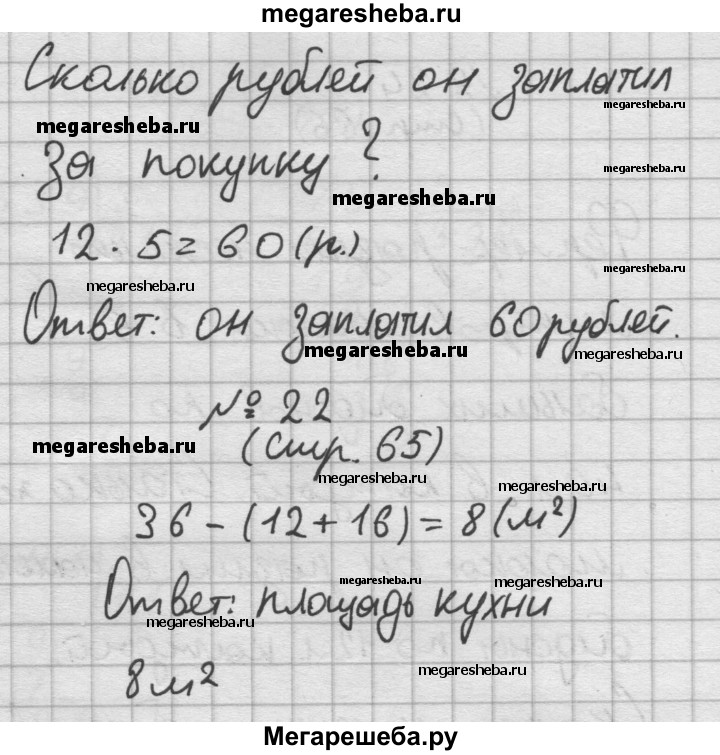 megaresheba.ru
Сколько рублей он заплатил
megaresheba.ru
megaresheba.ru
за покупку?
megaresheba.ru
megaresheba.ru
12 · 5 = 60 (р.)
megaresheba.ru
megaresheba.ru
Ответ: он заплатил 60 рублей.
megaresheba.ru
megaresheba.ru
№ 22
megaresheba.ru
(стр. 65)
megaresheba.ru
megaresheba.ru
36 - (12 + 16) = 8 (м²)
megaresheba.ru
megaresheba.ru
Ответ: площадь кухни
megaresheba.ru
megaresheba.ru
8 м²
Мегарешеба.ру